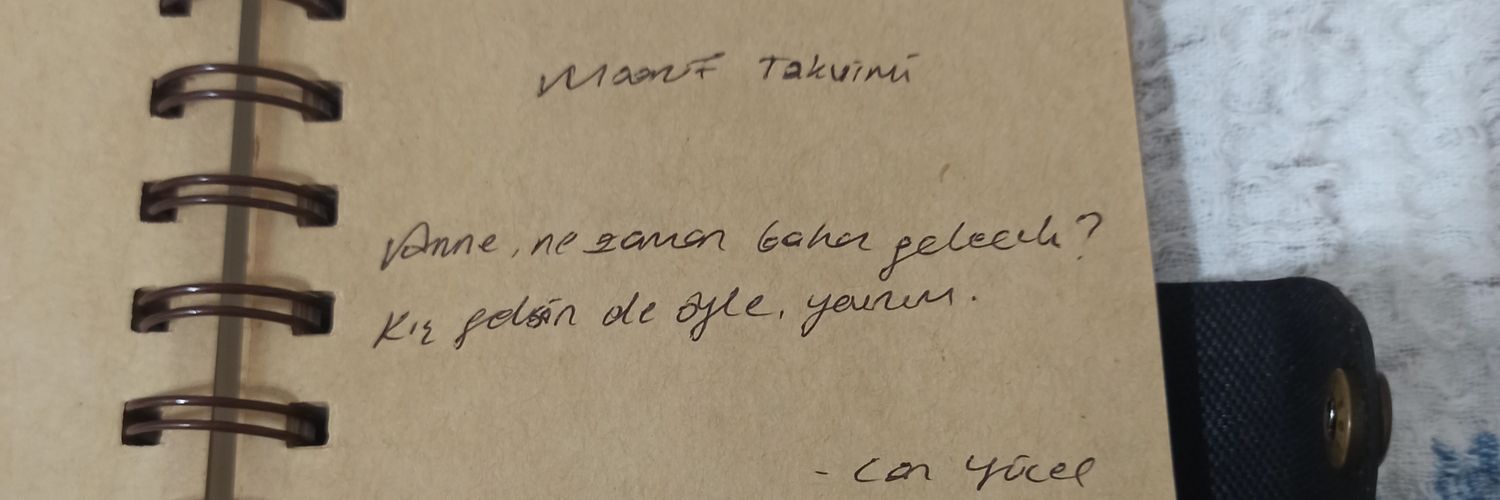 Maarif Takvimi
Anne, ne zaman bahar gelecek?
Kış gelsin de öyle, yavrum.
- Can Yücel